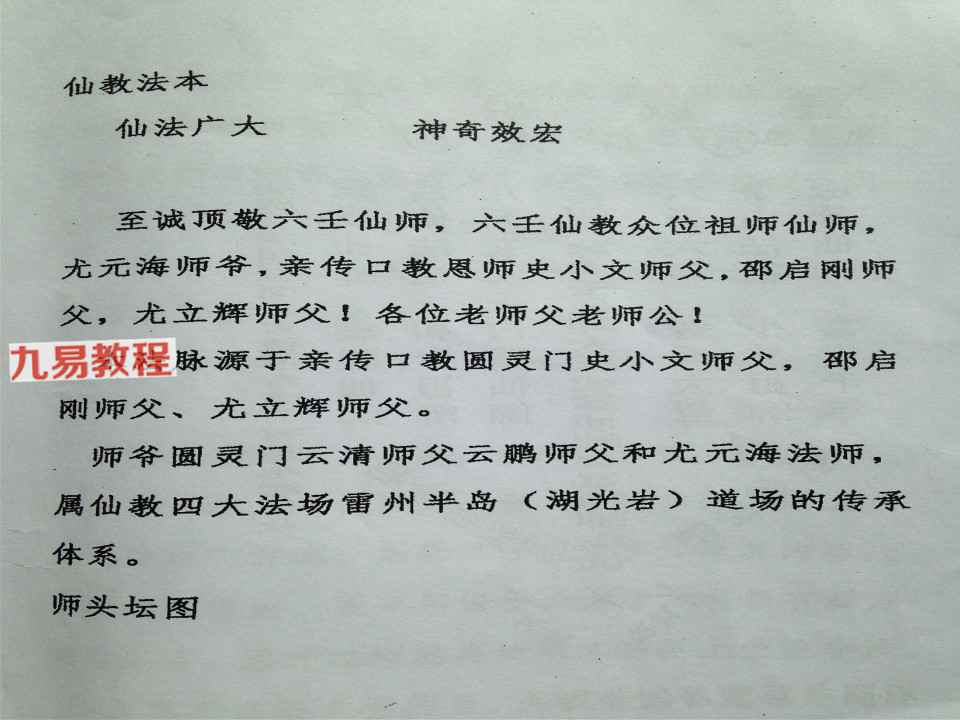 仙教法本
仙法广大 神奇效宏
至诚顶敬六壬仙师，六壬仙教众位祖师仙师，
尤元海师爷，亲传口教恩师史小文师父，邵启刚师
父，尤立辉师父！各位老师父老师公！
九易教程
脉源于亲传口教圆灵门史小文师父，邵启
刚师父、尤立辉师父。
师爷圆灵门云清师父云鹏师父和尤元海法师，
属仙教四大法场雷州半岛（湖光岩）道场的传承
体系。
师头坛图